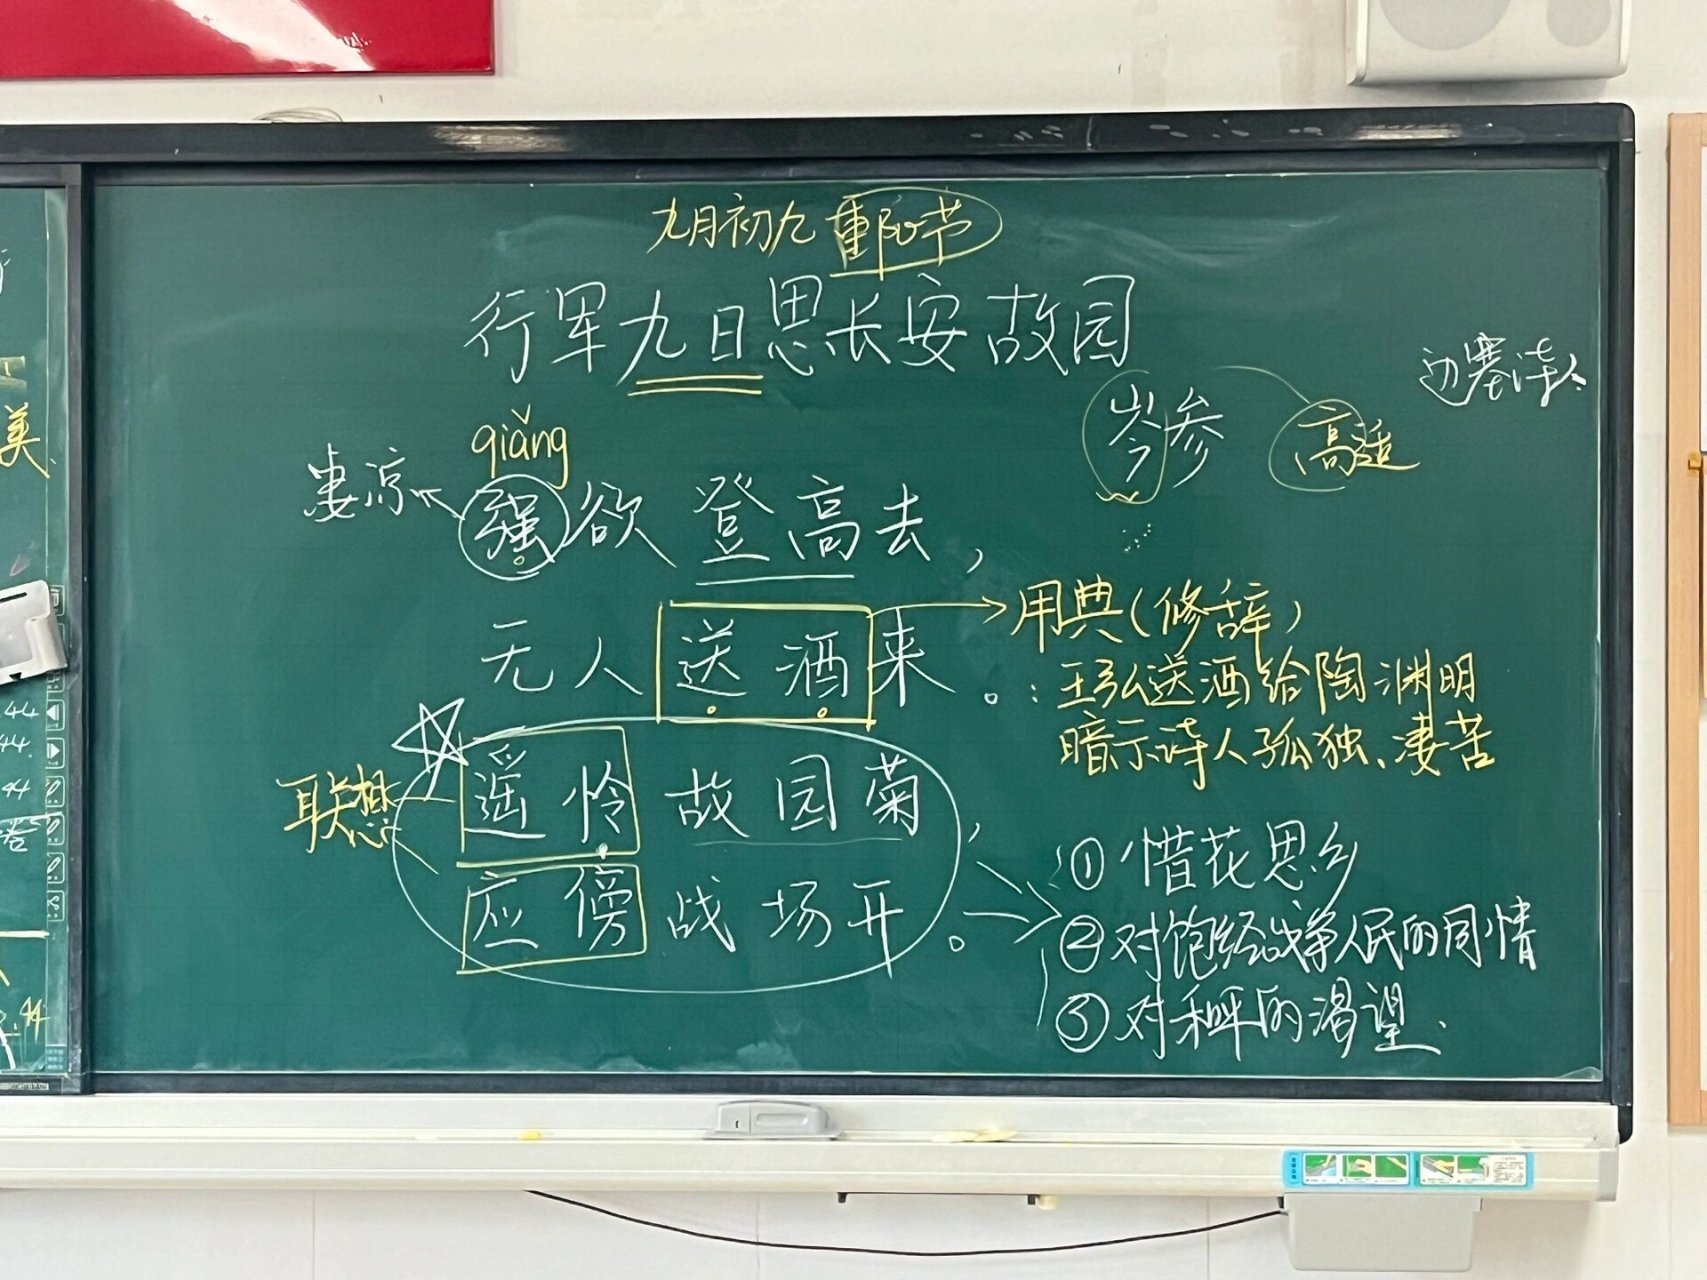 九月初九 重阳节
行军九日思长安故园
边塞诗人
岑参 高适
qiǎng
凄凉 强欲登高去，
无人送酒来。
用典（修辞）
：王弘送酒给陶渊明
暗示诗人孤独、凄苦
联想
遥怜故园菊，
应傍战场开。
①惜花思乡
②对饱经战争人民的同情
③对和平的渴望.
美
44
44
44
答
44